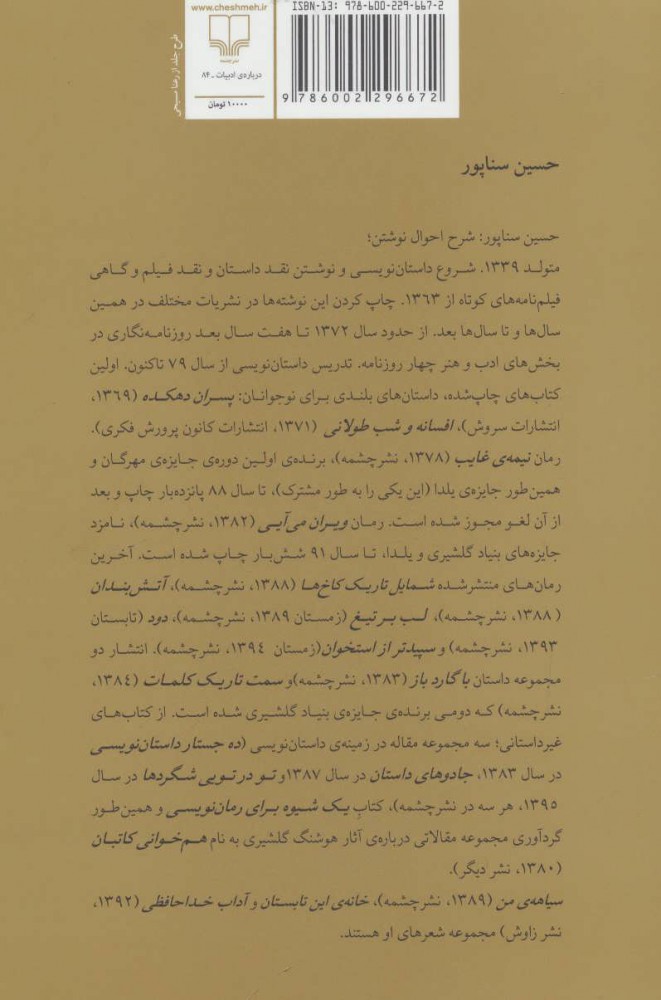 ISBN-13: 978-600-229-667-2
www.cheshmeh.ir
نشرچشمه
درباره‌ی ادبیات ـ ۸۴
۱۰۰۰۰ تومان
9 786002 296672
طرح جلد از رضا مسیحی
حسین سناپور
حسین سناپور: شرح احوال نوشتن؛
متولد ۱۳۳۹. شروع داستان‌نویسی و نوشتن نقد داستان و نقد فیلم و گاهی
فیلم‌نامه‌های کوتاه از ۱۳۶۳. چاپ کردن این نوشته‌ها در نشریات مختلف در همین
سال‌ها و تا سال‌ها بعد. از حدود سال ۱۳۷۲ تا هفت سال بعد روزنامه‌نگاری در
بخش‌های ادب و هنر چهار روزنامه. تدریس داستان‌نویسی از سال ۷۹ تاکنون. اولین
کتاب‌های چاپ‌شده، داستان‌های بلندی برای نوجوانان: پسران دهکده (۱۳۶۹،
انتشارات سروش)، افسانه و شب طولانی (۱۳۷۱، انتشارات کانون پرورش فکری).
رمان نیمه‌ی غایب (۱۳۷۸، نشرچشمه)، برنده‌ی اولین دوره‌ی جایزه‌ی مهرگان و
همین‌طور جایزه‌ی یلدا (این یکی را به طور مشترک)، تا سال ۸۸ پانزده‌بار چاپ و بعد
از آن لغو مجوز شده است. رمان ویران می‌آیی (۱۳۸۲، نشرچشمه)، نامزد
جایزه‌های بنیاد گلشیری و یلدا، تا سال ۹۱ شش‌بار چاپ شده است. آخرین
رمان‌های منتشرشده شمایل تاریک کاخ‌ها (۱۳۸۸، نشرچشمه)، آتش‌بندان
(۱۳۸۸، نشرچشمه)، لب بر تیغ (زمستان ۱۳۸۹، نشرچشمه)، دود (تابستان
۱۳۹۳، نشرچشمه) و سپیدتر از استخوان(زمستان ۱۳۹۴، نشرچشمه). انتشار دو
مجموعه داستان با گارد باز (۱۳۸۳، نشرچشمه)و سمت تاریک کلمات (۱۳۸۴،
نشرچشمه) که دومی برنده‌ی جایزه‌ی بنیاد گلشیری شده است. از کتاب‌های
غیرداستانی؛ سه مجموعه مقاله در زمینه‌ی داستان‌نویسی (ده جستار داستان‌نویسی
در سال ۱۳۸۳، جادوهای داستان در سال ۱۳۸۷و تو در تویی شگردها در سال
۱۳۹۵، هر سه در نشرچشمه)، کتابِ یک شیوه برای رمان‌نویسی و همین‌طور
گردآوری مجموعه مقالاتی درباره‌ی آثار هوشنگ گلشیری به نام هم‌خوانی کاتبان
(۱۳۸۰، نشر دیگر).
سیاهه‌ی من (۱۳۸۹، نشرچشمه)، خانه‌ی این تابستان و آداب خداحافظی (۱۳۹۲،
نشر زاوش) مجموعه شعرهای او هستند.